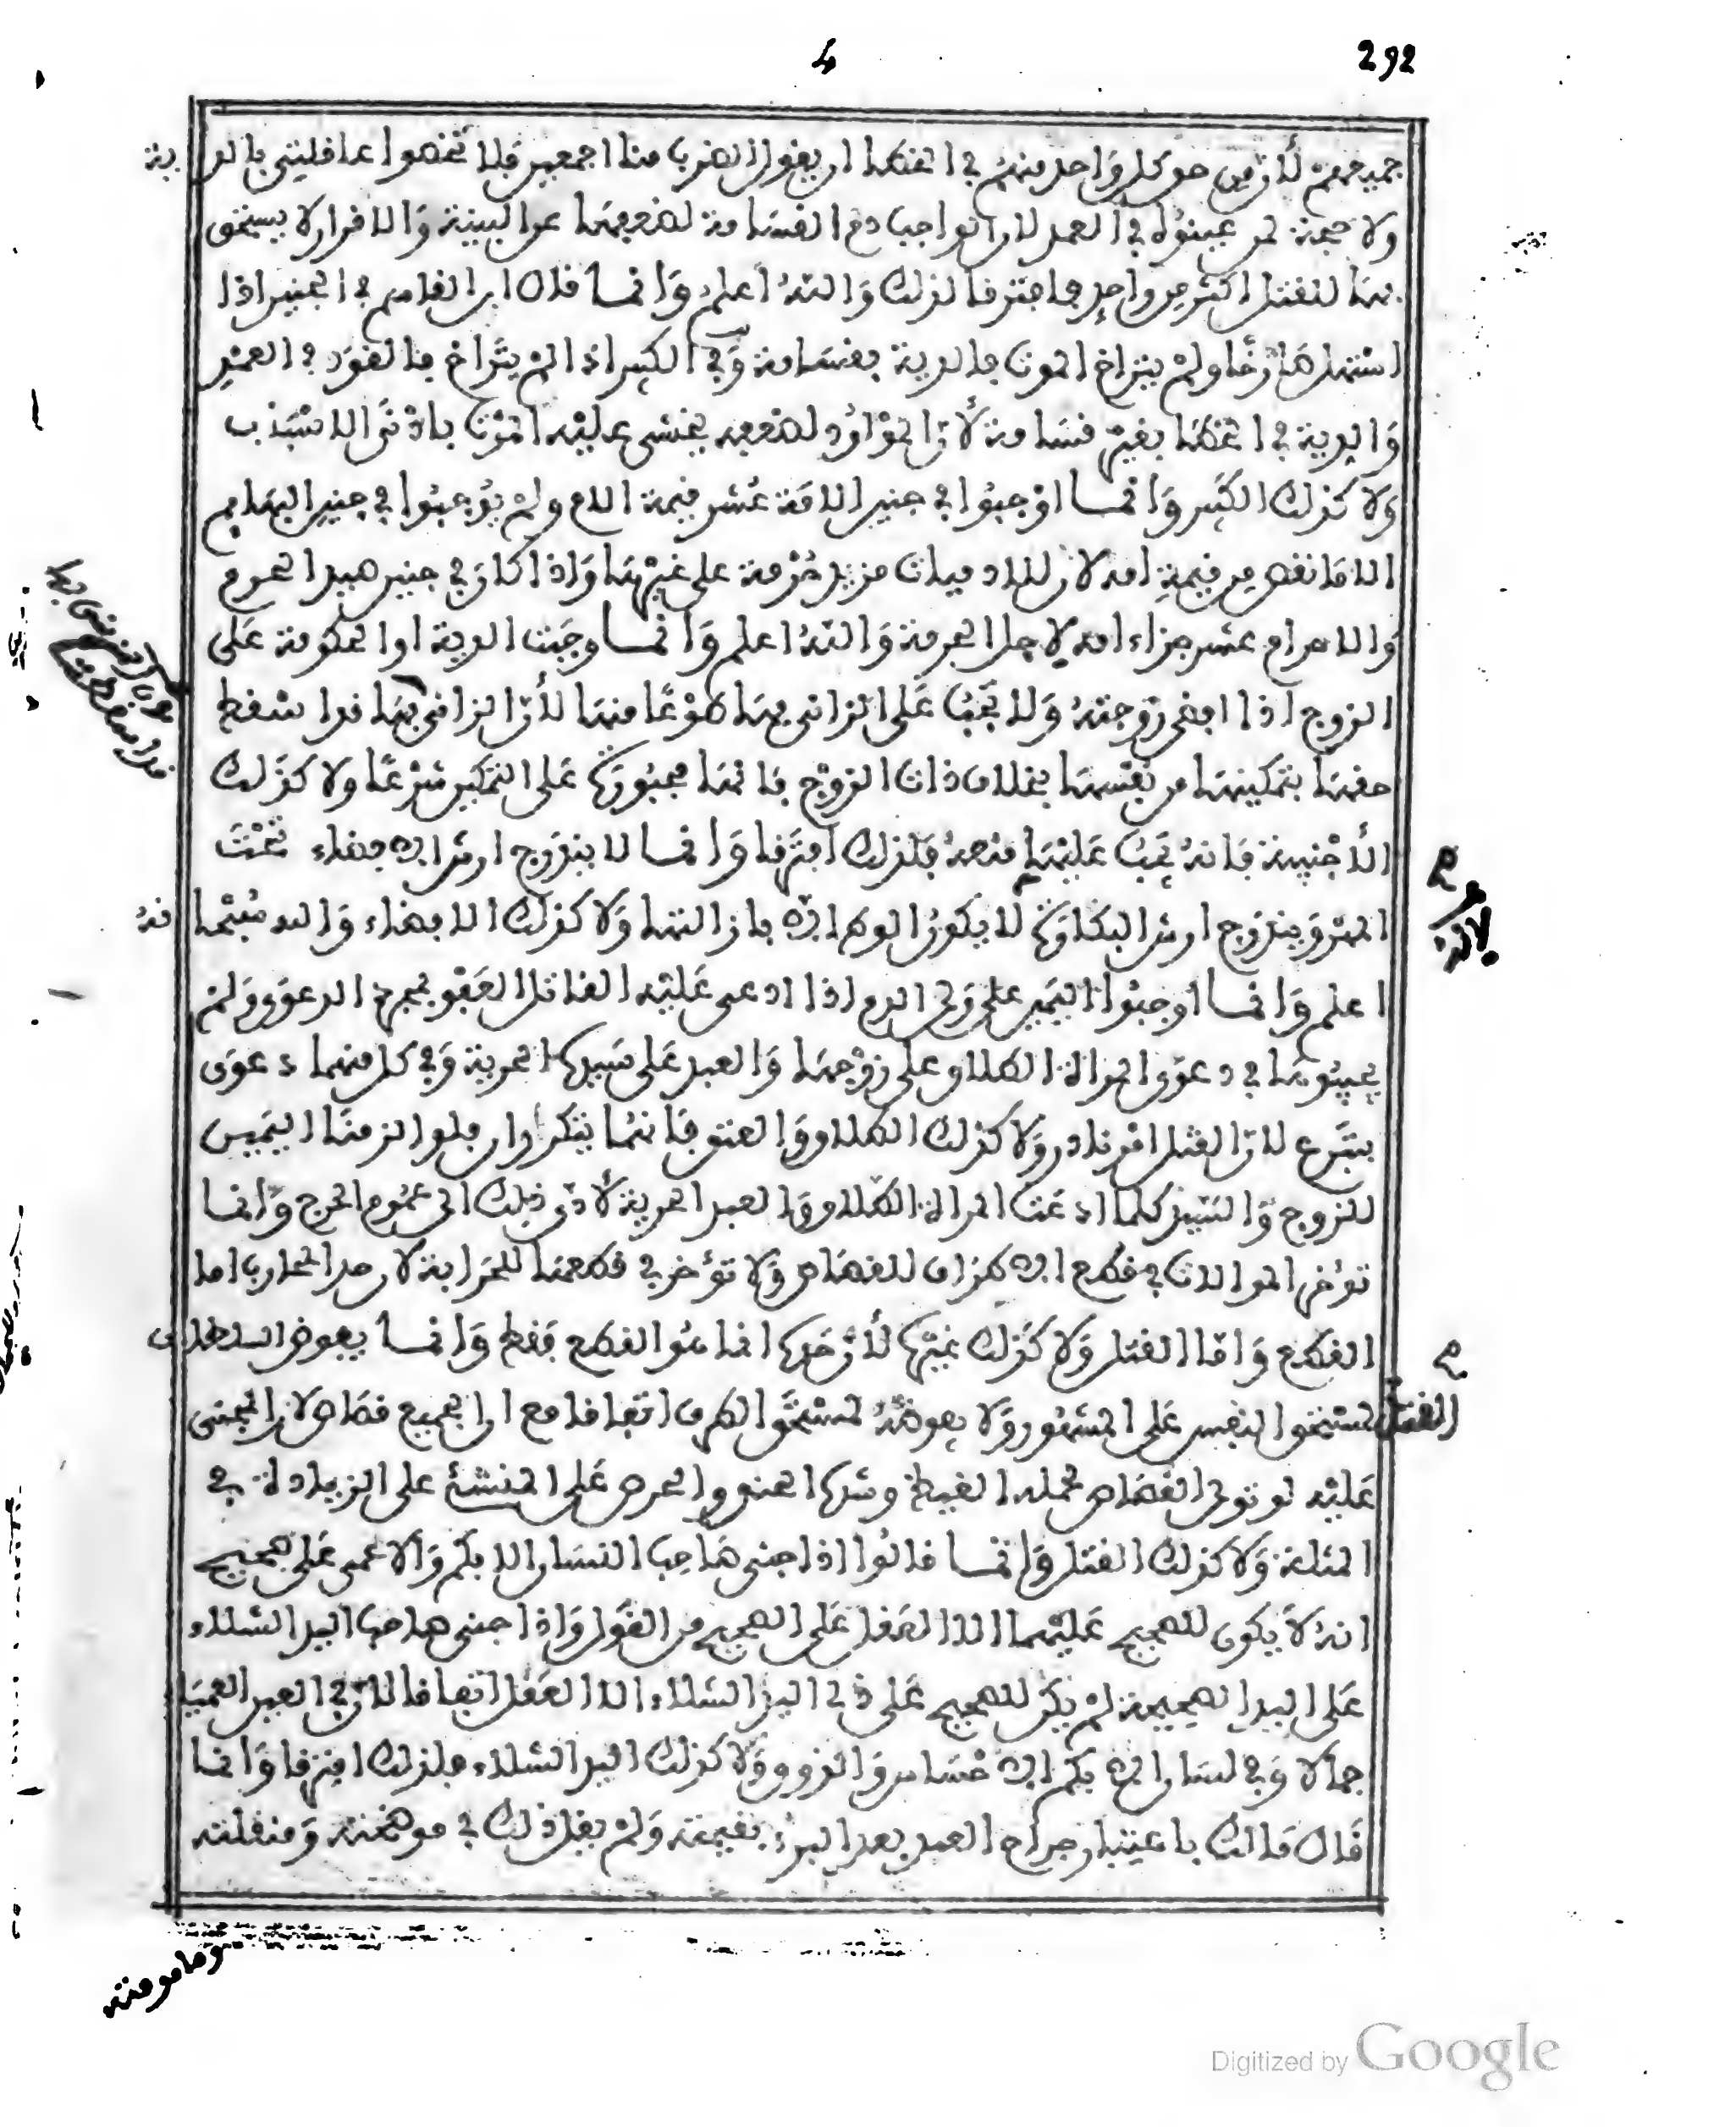 292
4
جميعهم لأن من حق كل واحد منهم في الخطا ان يقول الضرب منا اجمعين فلا تخصوا عاقلتي بالدية
ولا حجة لمن عينوه في العمد لان الواجب دم القسامة لضعفها عن البينة والاقرار لا يستحق
بها لنقتل اكثر من واحد فافترقا لذلك والله أعلم وانما قال ابن القاسم في الجنين اذا
استهل صارخا ولم يتراخ الموت فالدية بقسامة وفي الكبير اذا لم يتراخ فالقود في العمد
والدية في الخطا بغير قسامة لأن المولود لضعفه يخشى عليه الموت بادنى الاسباب
ولا كذلك الكبير وانما اوجبوا في جنين الامة عشر قيمة الام ولم يوجبوا في جنين البهايم
الا ما نقص من قيمة امه لان للادميات مزيد حرمة على غيرها واذا كان في جنين صيد الحرم
والاحرام عشر جزاء امه لاجل الحرمة والله اعلم وانما وجبت الدية او الحكومة على
الزوج اذا افضى زوجته ولا تجب على الزاني بها طوعا منها لأن الزاني بها قد اسقط
حقها بتمكينها من نفسها بخلاف ذات الزوج فانها مجبورة على التمكين شرعا ولا كذلك
الأجنبية فانه يجب عليها منعه فلذلك افترقا وانما لا يندرج ارش الافضاء تحت
المهر ويندرج ارش البكارة لا يكون الوطء الا بازالتها ولا كذلك الافضاء والله سبحانه
اعلم وانما اوجبوا اليمين على ولي الدم اذا ادعى عليه القاتل العفو بمجرد الدعوى ولم
يجيبوها في دعوى المراة الطلاق على زوجها والعبد على سيده الحرية وفي كل منهما دعوى
بتبرع لان القتل امر نادر ولا كذلك الطلاق والعتق فانهما يتكرران فلو الزمنا اليمين
للزوج والسيد كلما ادعت المراة الطلاق والعبد الحرية لأدى ذلك الى عموم الحرج وانما
تؤخر الموالات في قطع الاطراف للقصاص ولا تؤخر في قطعها للحرابة لان حد المحارب اما
القطع واما القتل ولا كذلك غيره لأن حده انما هو القطع فقط وانما يعوض السلطان
القتل لمستحق النفس على المشهور ولا يعوضه لمستحق الطرف اتفاقا مع ان الجميع قصاص لان المجنى
عليه لو تولى القصاص لحمله الغيظ وشدة الحنق والحرص على المنشئ على الزيادة في
المثلة ولا كذلك القتل وانما قالوا اذا جنى صاحب اللسان الابكم والاعمى على صحيح
انه لا يكون للصحيح عليهما الا العقل على الصحيح من القول واذا جنى صاحب اليد الشلاء
على اليد الصحيحة لم يكن للصحيح على ذي اليد الشلاء الا العقل اتفاقا لان في العين العمياء
جمالا وفي لسان الابكم الاحساس والذوق ولا كذلك اليد الشلاء فلذلك افترقا وانما
قال مالك باعتبار جراح العبد بعد البرء بقيمته ولم يقل ذلك في موضحته ومنقلته
ومامومته